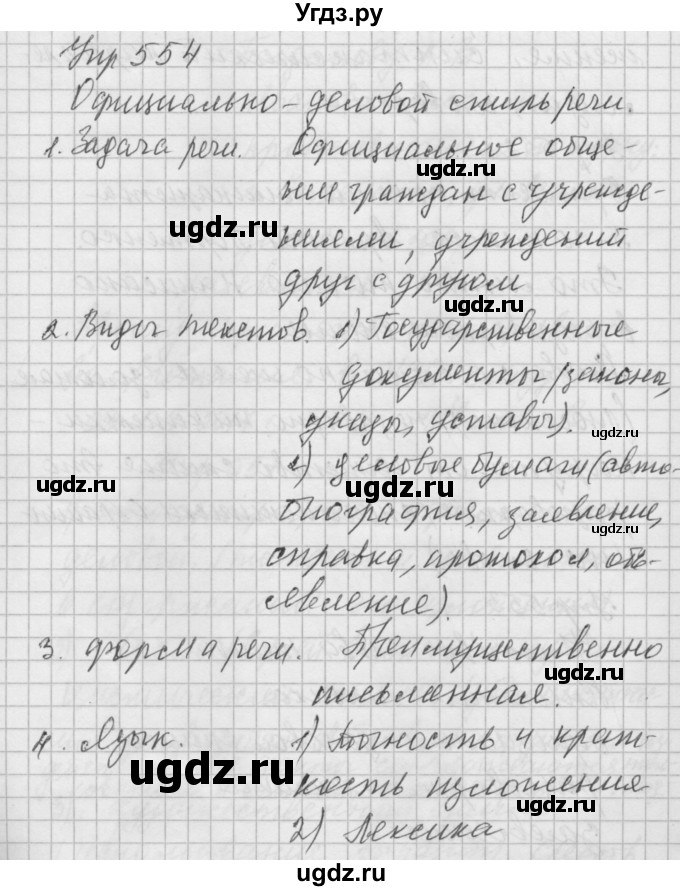 Угдз.ру
Упр 554
Официально-деловой стиль речи.
1. Задача речи. Официальное обще-
ние граждан с учрежде-
ugdz.ru
ugdz.ru
ниями, учреждений
друг с другом
ugdz.ru
2. Виды текстов. 1) Государственные
документы (законы,
указы, уставы).
ugdz.ru
2) деловые бумаги (авто-
ugdz.ru
ugdz.ru
биография, заявление,
ugdz.ru
справка, протокол, объ-
явление).
3. Форма речи. Преимущественно
ugdz.ru
письменная.
4. Язык. 1) Точность и крат-
ugdz.ru
ugdz.ru
кость изложения
2) Лексика
ugdz.ru
Угдз.ру